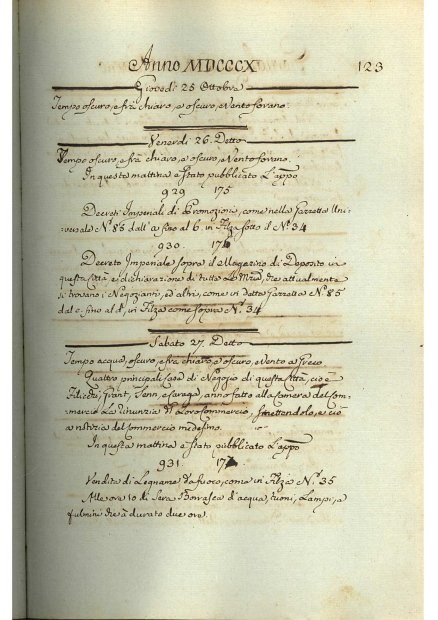 Anno MDCCCX 123
Giovedi 25 Ottobre
Tempo oscuro, e frà chiaro, e oscuro, e Vento forano.
Venerdi 26. Detto
Tempo oscuro, e frà chiaro, e oscuro, e Vento forano.
In questa mattina è stato pubblicato L'appo
929 175
Decreti Imperiali di Promozioni, come nella Gazzetta Uni-
versale N.º 85 dall' a fino al b. in Filza sotto il N.º 34
930. 17
Decreto Imperiale sopra il Magazzino di Deposito in
questa Città, e dichiarazione di tutte Le che attualmente
si trovano i Negozianti, ed altri, come in detta Gazzetta N.º 85
dal c. fino al d, in Filza come sopra N.º 34
Sabato 27. Detto
Tempo acqua, oscuro, e frà chiaro e oscuro, e Vento a Greco
Quattro principali Case di Negozio di questa Città, cioè
Filicchi, Grant, Senn, e anno fatto alla Camera del Com-
mercio La rinunzia di Loro Commercio, smettendolo, e ciò
a notizia del Commercio medesimo.
In questa mattina è stato pubblicato L'appo
931. 17
Vendita di Legname da fuoco, come in Filza N.º 35
Alle ore 10 di Sera Borrasca d'acqua, tuoni, Lampi, e
fulmini che à durato due ore.